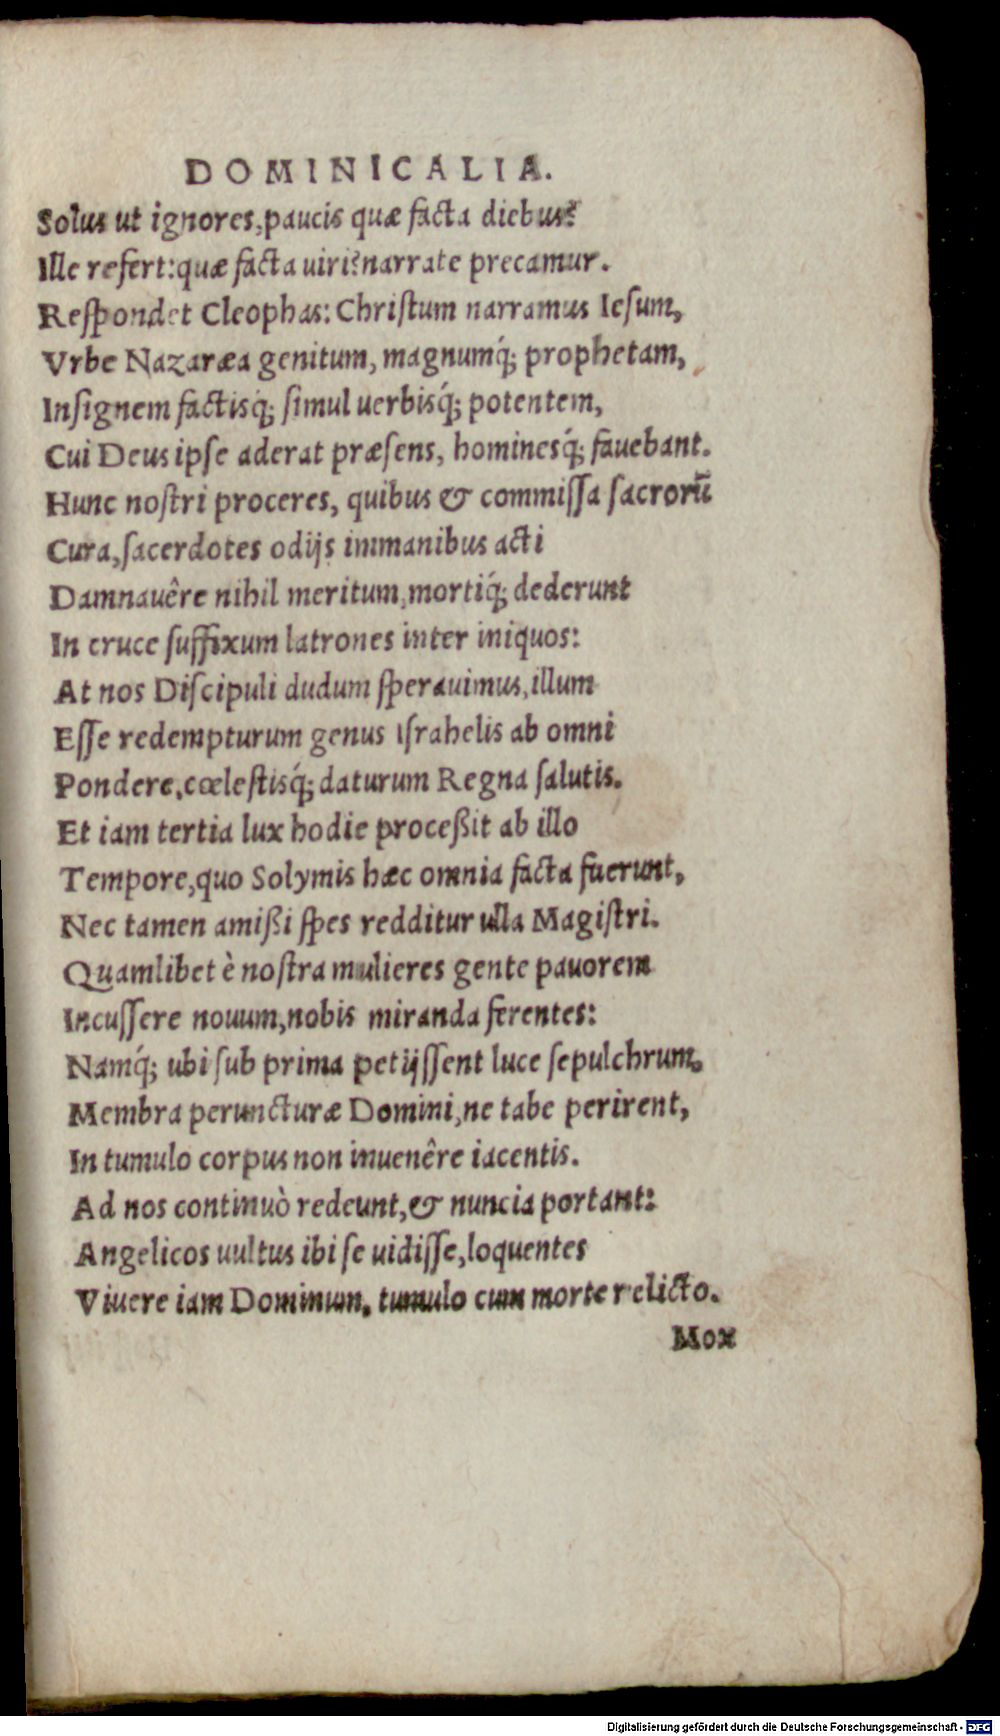 DOMINICALIA.
Solus ut ignores, paucis quæ facta diebus?
Ille refert: quæ facta uiri? narrate precamur.
Reſpondet Cleophas: Chriſtum narramus Ieſum,
Vrbe Nazaræa genitum, magnumq́; prophetam,
Inſignem factisq; ſimul uerbisq́; potentem,
Cui Deus ipſe aderat præſens, hominesq́; fauebant.
Hunc noſtri proceres, quibus & commiſſa ſacrorũ
Cura, ſacerdotes odijs immanibus acti
Damnauêre nihil meritum, mortiq́; dederunt
In cruce ſuffixum latrones inter iniquos:
At nos Diſcipuli dudum ſperauimus, illum
Eſſe redempturum genus Iſrahelis ab omni
Pondere, cœleſtisq́; daturum Regna ſalutis.
Et iam tertia lux hodie proceßit ab illo
Tempore, quo Solymis hæc omnia facta fuerunt,
Nec tamen amißi ſpes redditur ulla Magiſtri.
Quamlibet è noſtra mulieres gente pauorem
Incuſſere nouum, nobis miranda ferentes:
Namq́; ubi ſub prima petijſſent luce ſepulchrum,
Membra peruncturæ Domini, ne tabe perirent,
In tumulo corpus non inuenêre iacentis.
Ad nos continuò redeunt, & nuncia portant:
Angelicos uultus ibi ſe uidiſſe, loquentes
Viuere iam Dominum, tumulo cum morte relicto.
Mox
Digitalisierung gefördert durch die Deutsche Forschungsgemeinschaft - DFG